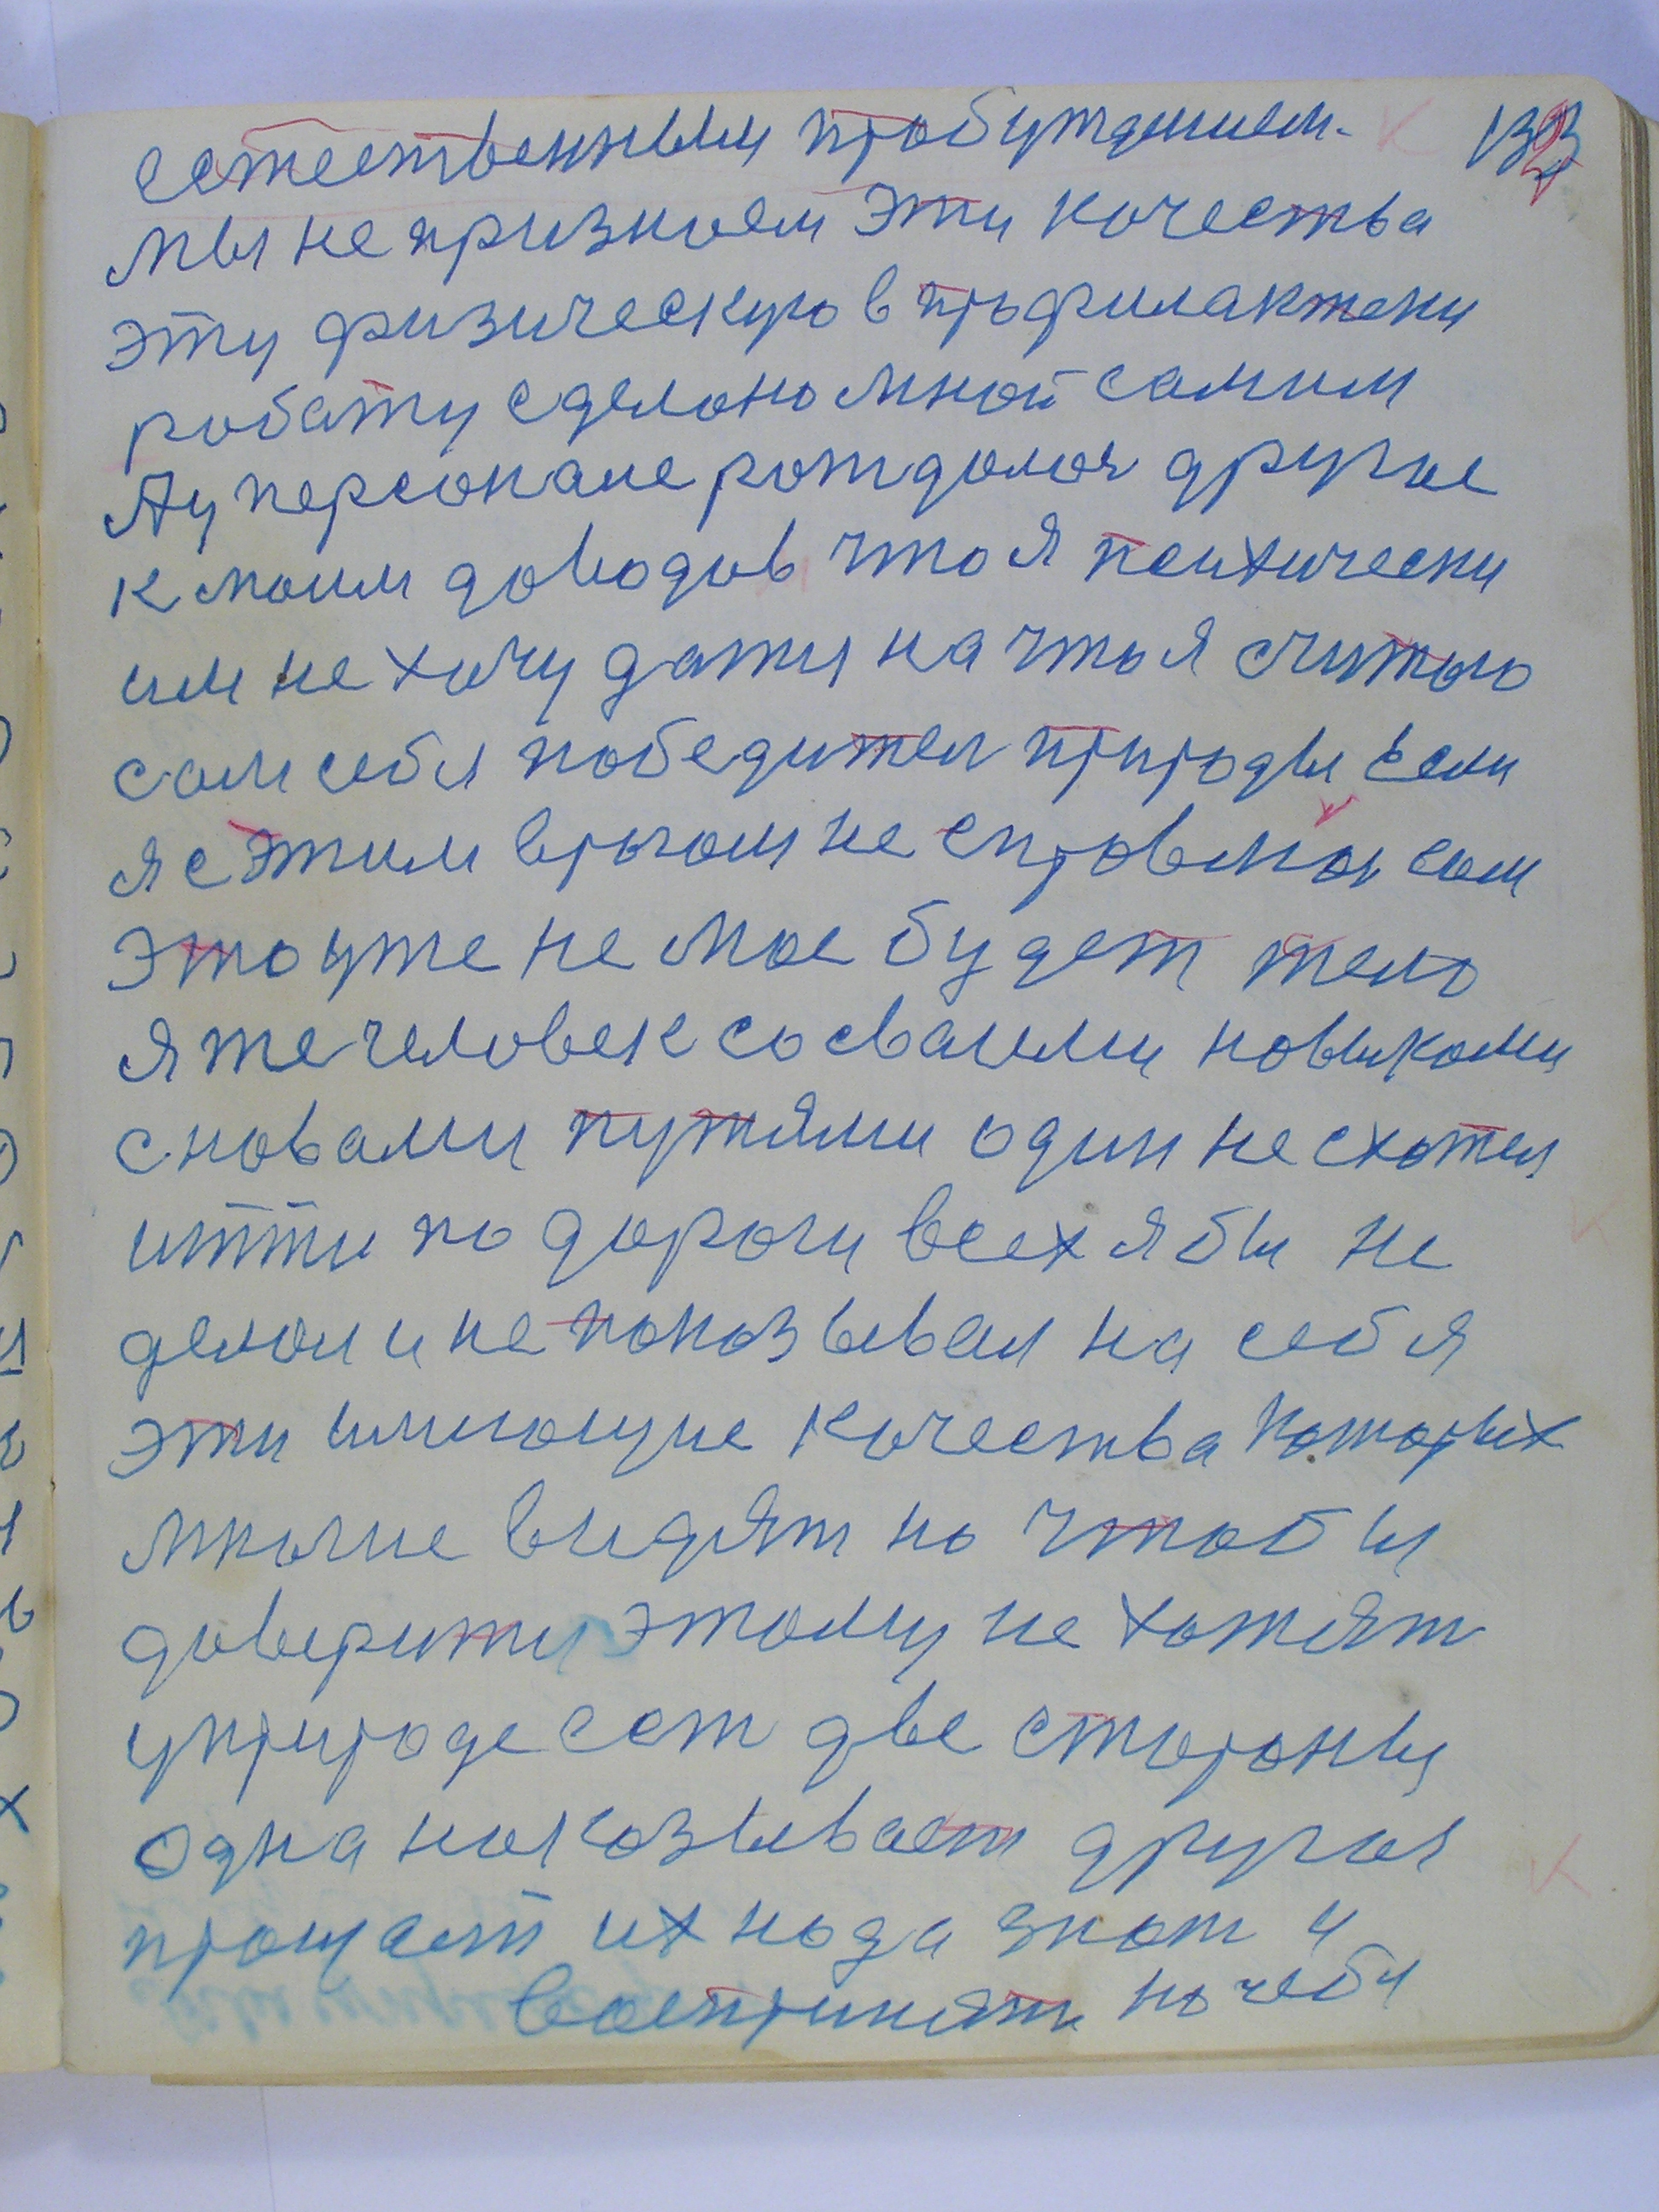 132
естественным пробуждением.
мы не признаем эти качества
эту физическую в профилактеки
работу сделано мной самим
А у персонале рождалося другие
к моим доводов что я психически
им не хочу дати на что я считаю
сам себя победител природы если
я с этим врагом не справлюся сам
это уже не мае будет тело
я же человек со сваими новыками
с новами путями один не схотел
итти по дороги всех я бы не
делал и не показывал на себя
эти имеющие качества которых
многие видят но чтобы
доверити этому не хотят
у природе ест две стороны
одна наказывает другая
прощает их нада знат и
воспринять на себя